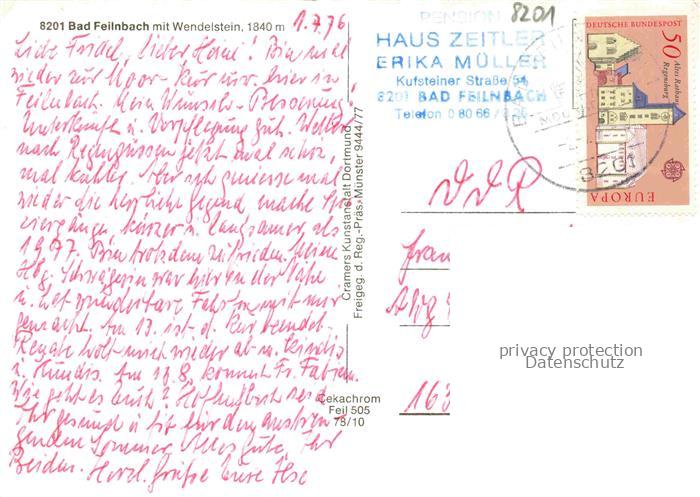 8201 Bad Feilnbach mit Wendelstein, 1840 m
1.7.76
Liebe Friedel, lieber Heini! Bin mal
wieder zur Moor-Kur hier in
Feilnbach. Mein Wunsch - Besserung,
Unterkunft u. Verpflegung gut. Wetter
nach Regengüssen jetzt mal schön,
mal kühler. Aber ich geniesse mal
wieder die herrliche Gegend, mache Spa-
ziergänge kürzer u. langsamer als
1977. Bin trotzdem zufrieden. Meine
Hbg. Schwägerin war hier in der Nähe
u. hat wunderbare Fahrten mit mir
gemacht. Am 13. ist d. Kur beendet.
Renate holt mich wieder ab m. Kindis
u. Hundis. Am 18. kommt Fr.
Wie geht es Euch? Hoffentlich seid
Ihr gesund u. fit für den anstren-
genden Sommer. Alles Gute, Ihr
Beiden. Herzl. Grüße Eure Ilse
Cramers Kunstanstalt Dortmund
Freigeg. d. Reg.-Präs. Münster 9444/77
Cekachrom
Feil 505
78/10
PENSION
8201
HAUS ZEITLER
ERIKA MÜLLER
Kufsteiner Straße 54
8201 BAD FEILNBACH
Telefon 0 80 66 /
DEUTSCHE BUNDESPOST
50
Altes Rathaus
Regensburg
EUROPA
8201
DDR
Frau
163
privacy protection
Datenschutz